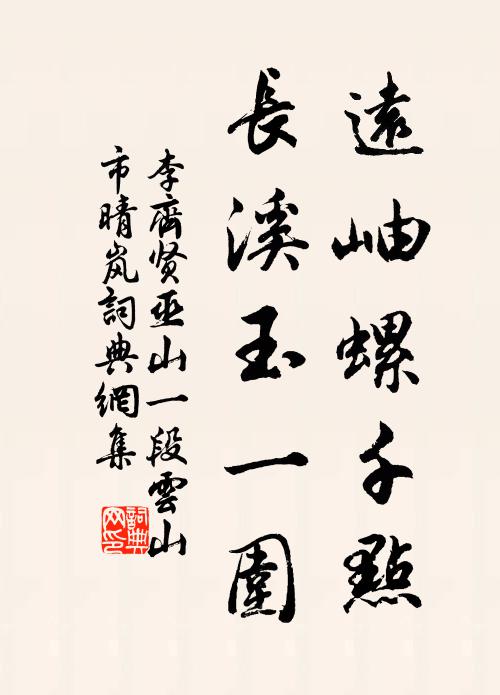 遠岫螺千點
長溪玉一圍
李齊贤巫山一段雲山
市晴岚詞典網集
詞典
网印